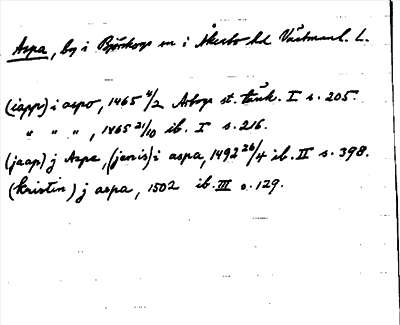 Aspa, by i Björskogs sn i Åkerbo hd Västmanl. L.
(iapp) i aspo, 1465 4/2 Arboga st. tänk. I s. 205.
" " ", 1465 21/10 ib. I s. 216.
(jaap) j Aspa, (jenis) i aspa, 1492 26/4 ib. II s. 398.
(kristin) j aspa, 1502 ib. III s. 129.